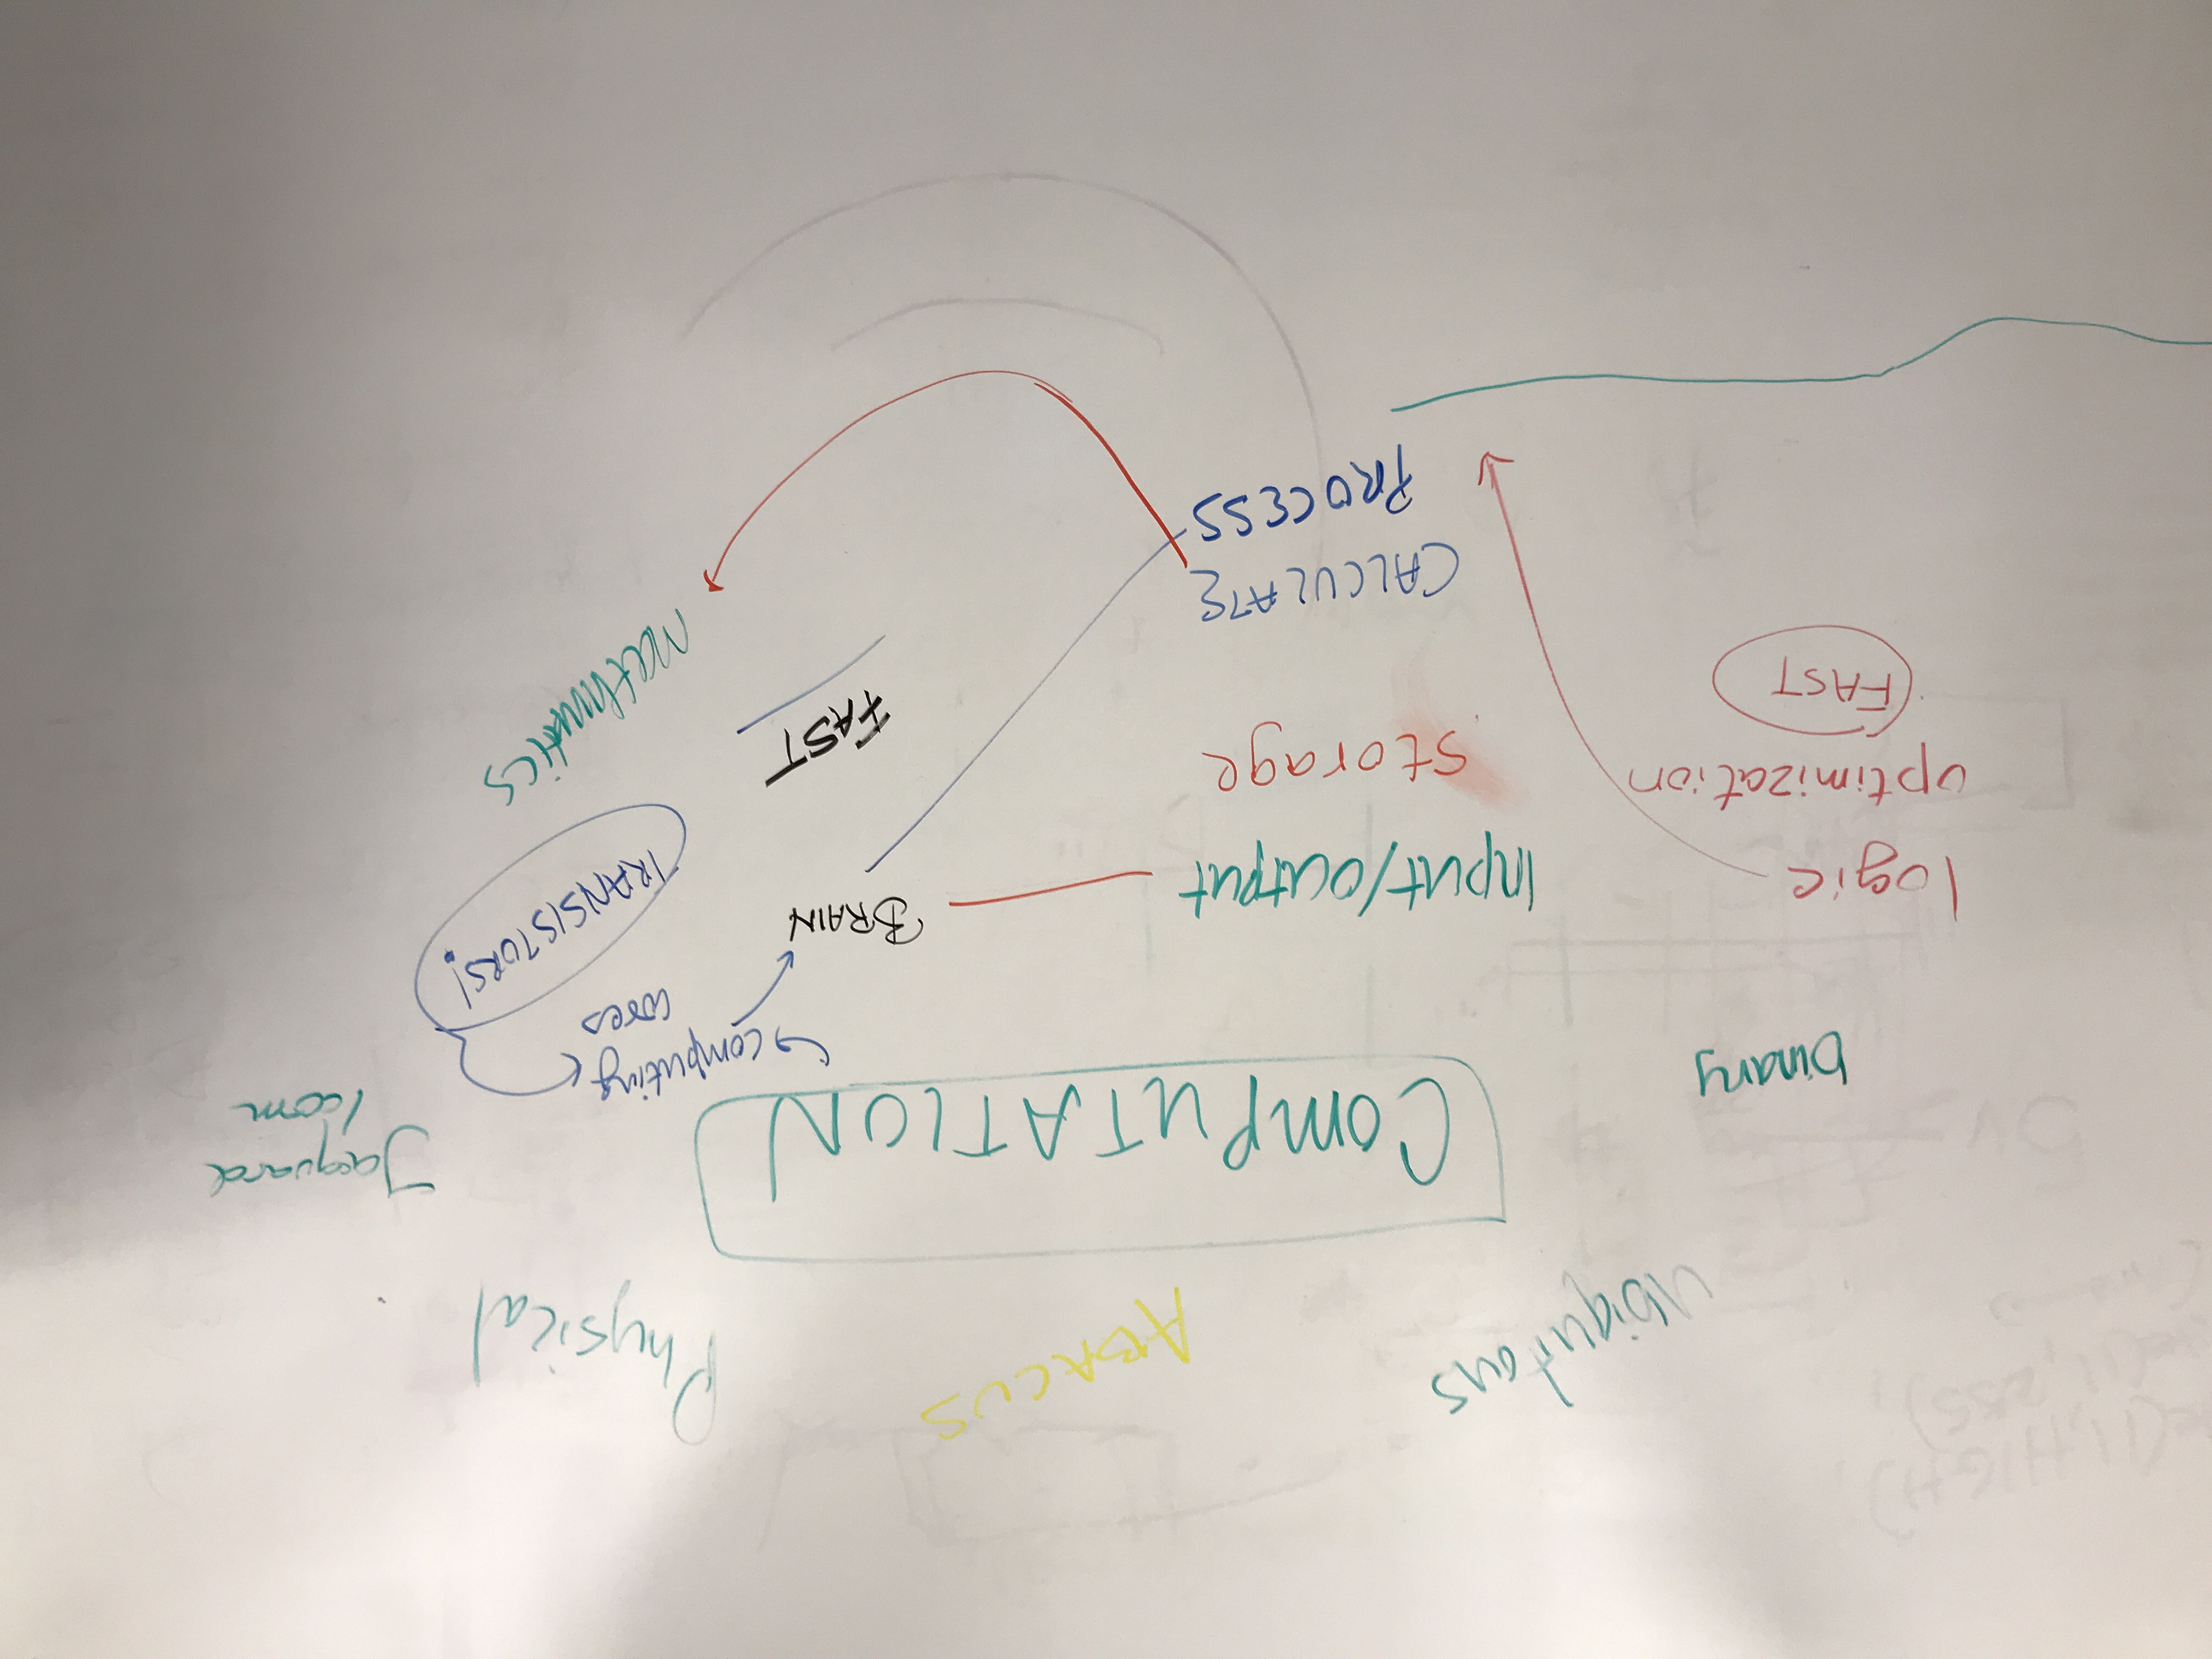 (11, HIGH);
(11, 255);
ubiquitous
ABACUS
Physical
COMPUTATION
Jacquard
loom
5v
binary
computing
cores
TRANSISTORS!
BRAIN
logic
Input/output
optimization
storage
FAST
FAST
mathmatics
CALCULATE
PROCESS